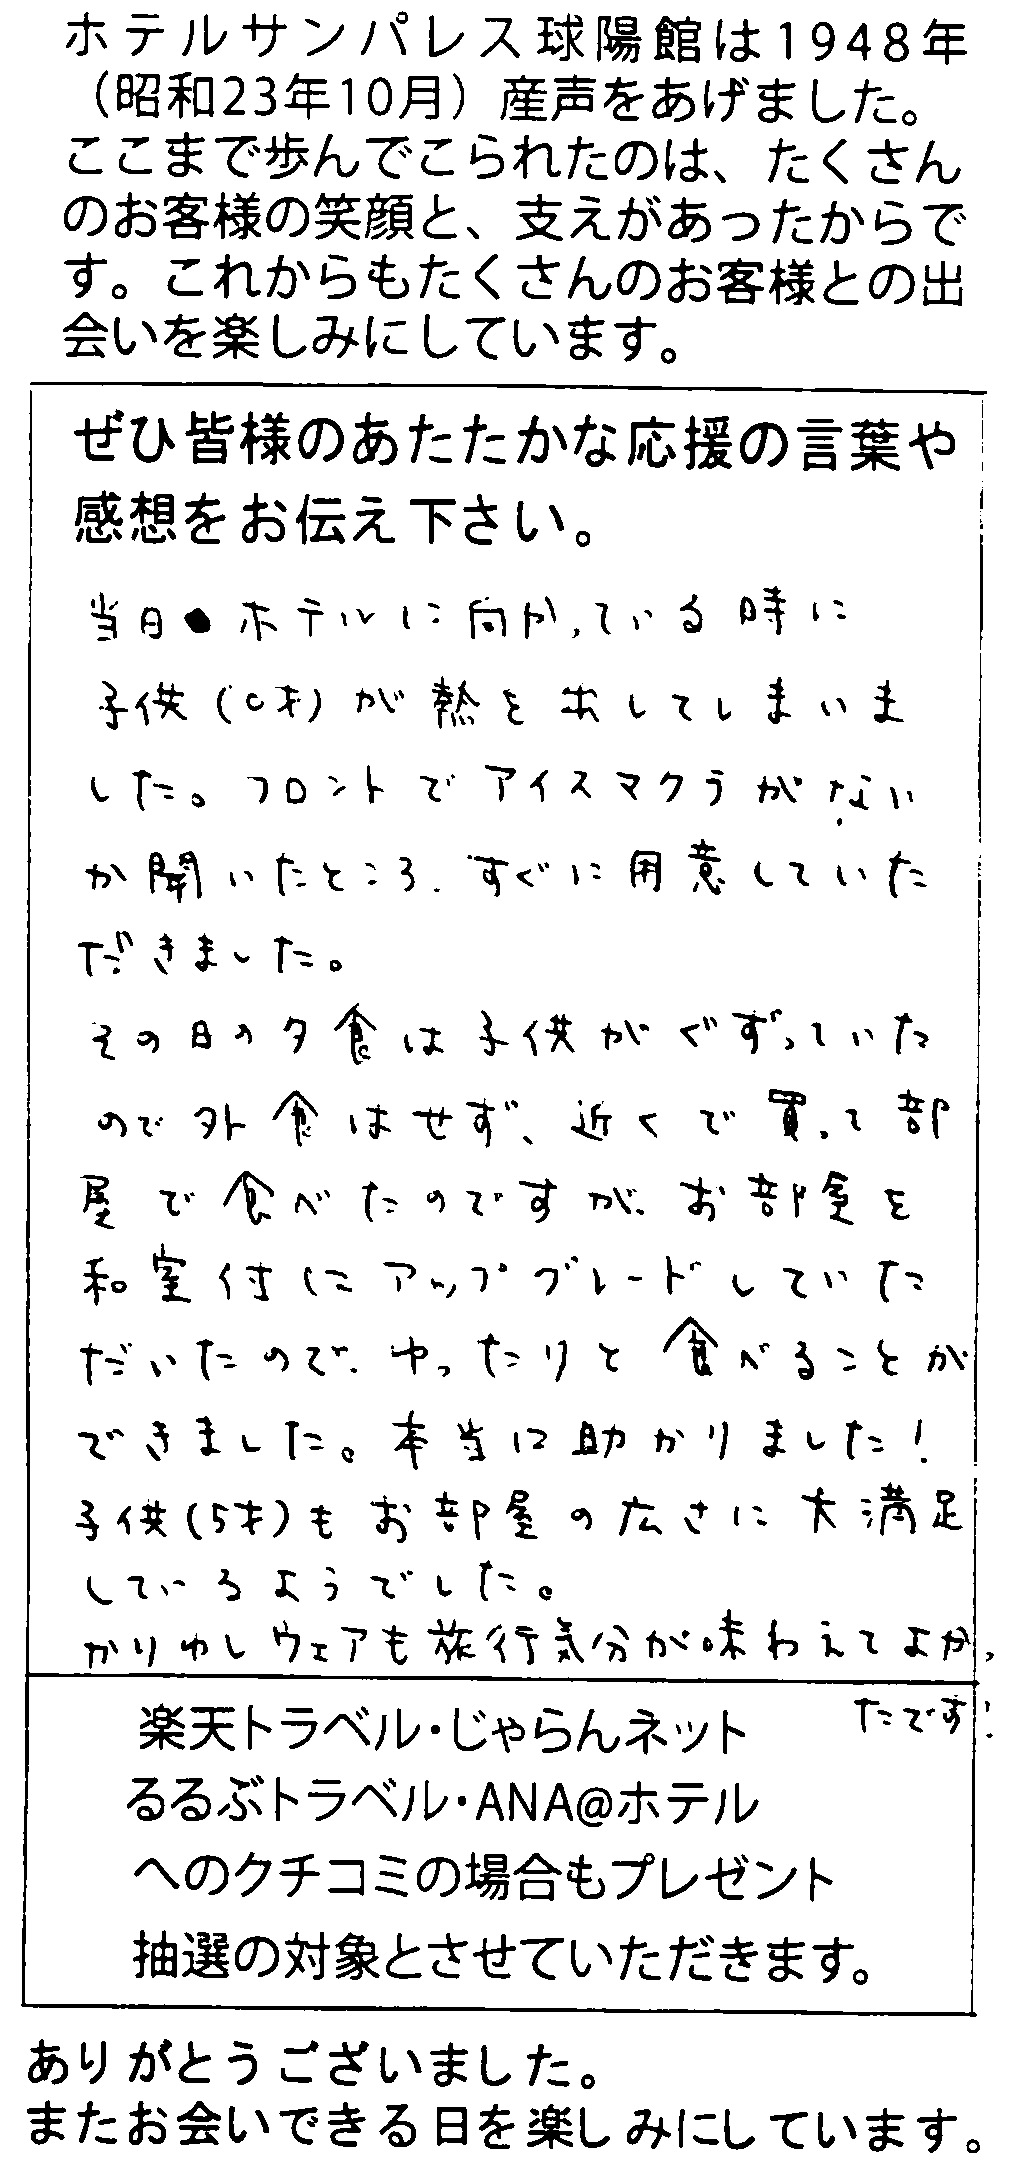 ホテルサンパレス球陽館は1948年
（昭和23年10月）産声をあげました。
ここまで歩んでこられたのは、たくさん
のお客様の笑顔と、支えがあったからで
す。これからもたくさんのお客様との出
会いを楽しみにしています。
ぜひ皆様のあたたかな応援の言葉や
感想をお伝え下さい。
当日 ホテルに向かっている時に
子供(0才)が熱を出してしまいま
した。フロントでアイスマクラがない
か聞いたところ、すぐに用意していた
だきました。
その日の夕食は子供がぐずっていた
ので外食はせず、近くで買って部
屋で食べたのですが、お部屋を
和室付にアップグレードしていた
だいたので、ゆったりと食べることが
できました。本当に助かりました!
子供(5才)もお部屋の広さに大満足
しているようでした。
かりゆしウェアも旅行気分が味わえてよかっ
たです!
楽天トラベル・じゃらんネット
るるぶトラベル・ANA@ホテル
へのクチコミの場合もプレゼント
抽選の対象とさせていただきます。
ありがとうございました。
またお会いできる日を楽しみにしています。